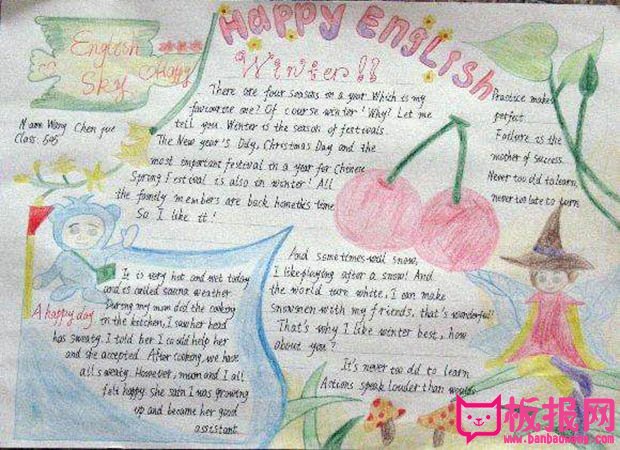 HAPPY ENGLISH
English
Sky
Happy
Name Wang Chen yue
Class: 505
Winter!!
There are four seasons in a year. Which is my
favourite one? Of course winter! Why? Let me
tell you. Winter is the season of festivals
The New year's Day, Christmas Day and the
most important festival in a year for Chinese
Spring Festival is also in winter! All
the family members are back home
So I like it!
Practice makes
perfect.
Failure is the
mother of success.
Never too old to learn,
never too late to turn
And sometimes will snow,
I like playing after a snow! And
the world turn white, I can make
snowmen with my friends, that's wonderful!
That's why I like winter best, how
about you?
It's never too old to learn
Actions speak louder than
A happy day
It is very hot and wet today
and is called sauna weather
During my mum did the cooking
in the kitchen, I saw her head
has sweaty. I told her I could help her
and she accepted. After cooking, we have
all sweaty. However, mum and I all
felt happy. She sain I was growing
up and became her good
assistant.
板报网
www.banbaowang.com